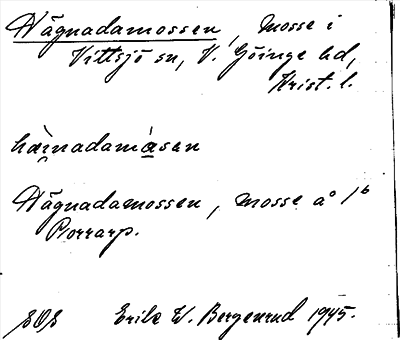 Hägnadamossen, Mosse i
Vittsjö sn, V. Göinge hd,
Krist. l.
hæ̀i̯nadamå̀san
Hägnadamossen, mosse å 1b
Porrarp.
Erik W. Bergenrud 1945.